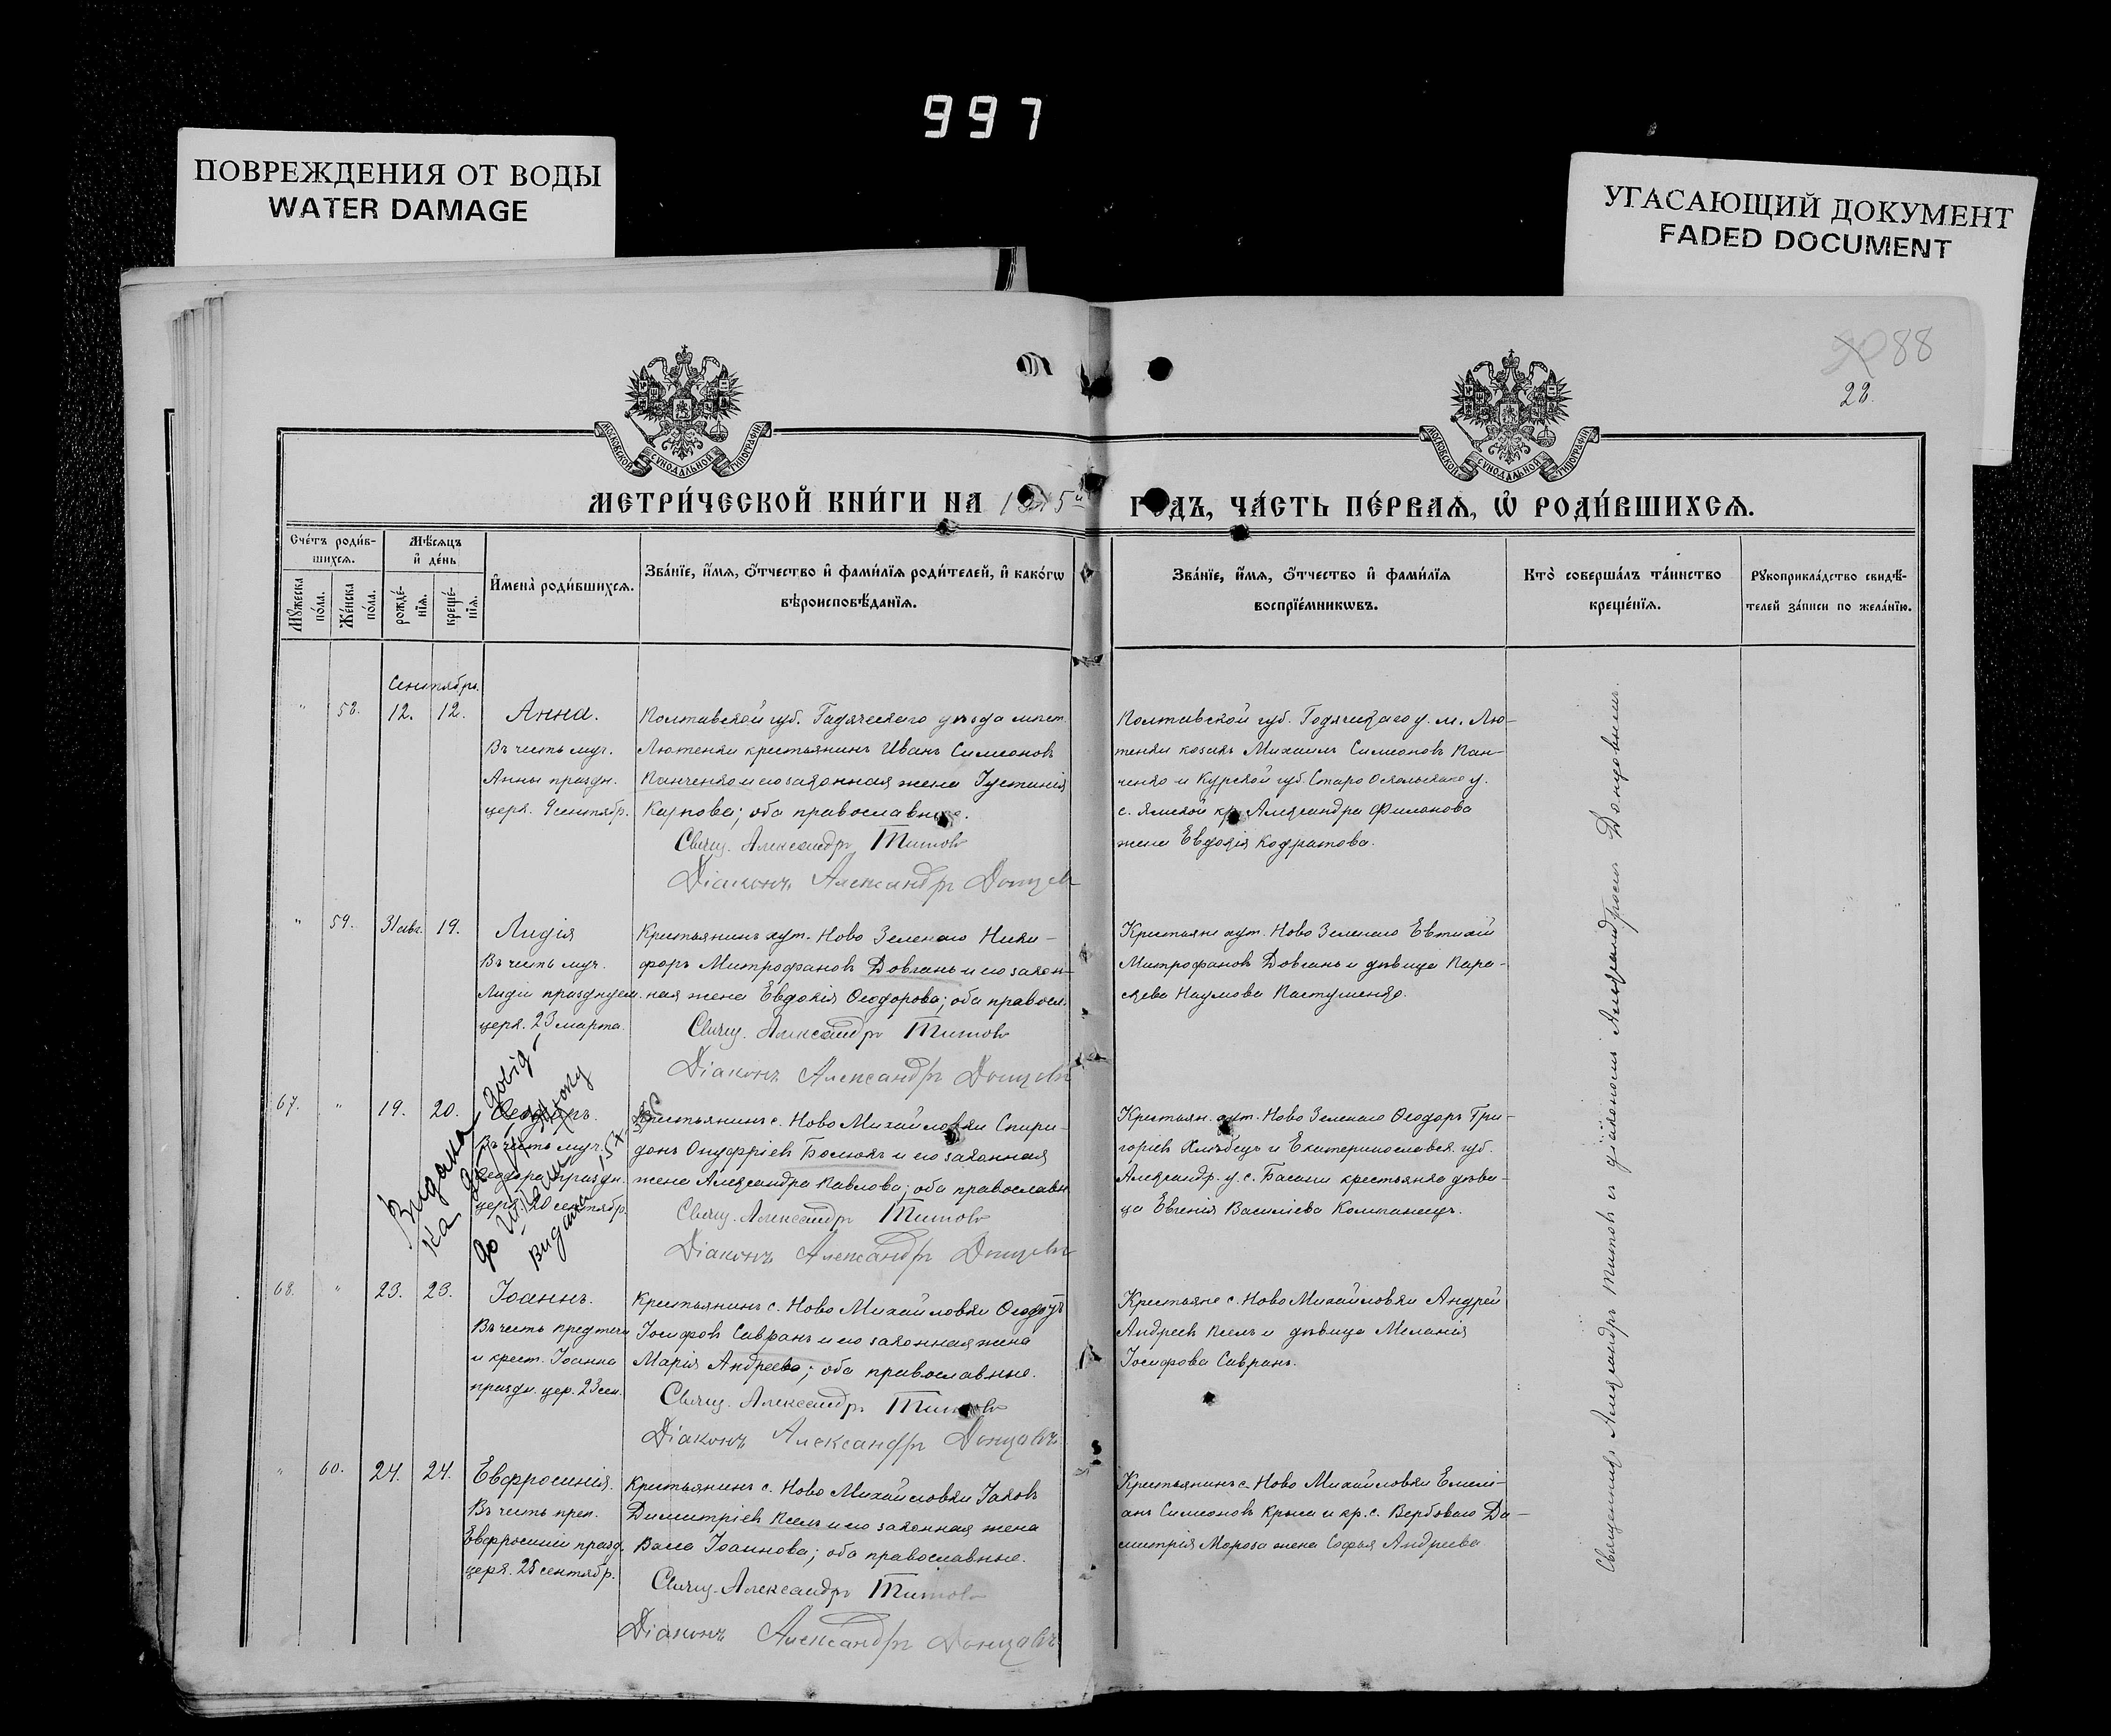 997
ПОВРЕЖДЕНИЯ ОТ ВОДЫ
WATER DAMAGE
УГАСАЮЩИЙ ДОКУМЕНТ
FADED DOCUMENT
88
22.
МОСКОВСКОЙ СѴНОДАЛЬНОЙ ТИПОГРАФІИ
МОСКОВСКОЙ СѴНОДАЛЬНОЙ ТИПОГРАФІИ
МЕТРИ́ЧЕСКОЙ КНИ́ГИ НА 1915й ГОДЪ, ЧА́СТЬ ПЕ́РВАѦ, Ѡ҆ РОДИ́ВШИХСѦ.
Сче́тъ роди́в-
шихсѧ.
Мꙋ́жеска по́ла.
Же́нска по́ла.
Мѣ́сѧцъ
и҆ де́нь
рожде́-
нїѧ.
креще́-
нїѧ.
И҆мена̀ роди́вшихсѧ.
Зва́нїе, и҆́мѧ, ѻ҆́тчество и҆ фами́лїѧ роди́телей, и҆ како́гѡ
вѣроисповѣ́данїѧ.
Зва́нїе, и҆́мѧ, ѻ҆́тчество и҆ фами́лїѧ
воспрїе́мникѡвъ.
Кто̀ соверша́лъ та́инство
креще́нїѧ.
Рꙋкоприкла́дство свидѣ́-
телей за́писи по жела́нїю.
Сентябрь.
" 58. 12. 12. Анна.
Въ честь муч.
Анны праздн.
церк. 9 сентябр.
Полтавской губ. Гадяческаго уѣзда мѣст.
Лютенки крестьянинъ Иванъ Симеоновъ
Панченко и его законная жена Іустинія
Карпова; оба православные.
Свящ. Александръ Титовъ
Діаконъ Александръ Донцовъ
Полтавской губ. Гадячскаго у. м. Лю-
тенки козакъ Михаилъ Симеоновъ Пан-
ченко и Курской губ. Старо Оскольскаго у.
с. Ямской кр. Александра Филонова
жена Евдокія Кодратова.
" 59. 31 авг. 19. Лидія
Въ честь муч.
Лидіи празднуем.
церк. 23 марта.
Крестьянинъ хут. Ново Зеленаго Ники-
форъ Митрофановъ Довгань и его закон-
ная жена Евдокія Ѳеодорова; оба правосл.
Свящ. Александръ Титовъ
Діаконъ Александръ Донцовъ
Крестьяне хут. Ново Зеленаго Евтихій
Митрофановъ Довгань и дѣвица Пара-
скева Наумова Пастушенко.
67. " 19. 20. Ѳеодоръ.
Въ честь муч.
Ѳеодора праздн.
церк. 20 сентябр.
Видана довід-
ка
до
видана
Крестьянинъ с. Ново Михайловки Спири-
донъ Онуфріевъ Болюкъ и его законная
жена Александра Павлова; оба православн.
Свящ. Александръ Титовъ
Діаконъ Александръ Донцовъ
Крестьян. хут. Ново Зеленаго Ѳеодоръ Гри-
горіевъ Хлѣбецъ и Екатеринославск. губ.
Александр. у. с. Басани крестьянка дѣви-
ца Евгенія Василіева Компанеецъ.
68. " 23. 23. Іоаннъ.
Въ честь предтечи
и крест. Іоанна
праздн. цер. 23 сен.
Крестьянинъ с. Ново Михайловки Ѳеодоръ
Іосифовъ Савранъ и его законная жена
Марія Андреева; оба православные.
Свящ. Александръ Титовъ
Діаконъ Александръ Донцовъ
Крестьяне с. Ново Михайловки Андрей
Андреевъ Псёлъ и дѣвица Меланія
Іосифова Савранъ.
" 60. 24. 24. Евфросинія.
Въ честь преп.
Евфросиніи празд.
церк. 25 сентябр.
Крестьянинъ с. Ново Михайловки Іаковъ
Димитріевъ Псёлъ и его законная жена
Васса Іоаннова; оба православные.
Свящ. Александръ Титовъ
Діаконъ Александръ Донцовъ
Крестьянинъ с. Ново Михайловки Емелі-
анъ Симеоновъ Крыса и кр. с. Вербоваго Ди-
митрія Мороза жена Софья Андреева
Священникъ Александръ Титовъ съ діакономъ Александромъ Донцовымъ.